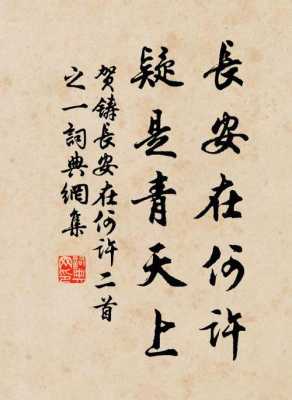 長安在何許
疑是青天上
賀鑄長安在何許二首
之一詞典網集